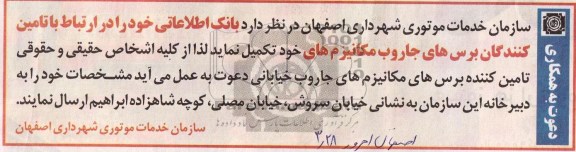 دعوت به همکاری
سازمان خدمات موتوری شهرداری اصفهان در نظر دارد بانک اطلاعاتی خود را در ارتباط با تامین
کنندگان برس های جاروب مکانیزم های خود تکمیل نماید لذا از کلیه اشخاص حقیقی و حقوقی
تامین کننده برس های مکانیزم های جاروب خیابانی دعوت به عمل می آید مشخصات خود را به
دبیرخانه این سازمان به نشانی خیابان سروش، خیابان مصلی، کوچه شاهزاده ابراهیم ارسال نمایند.
سازمان خدمات موتوری شهرداری اصفهان
اصفهان امروز ۳/۲۸